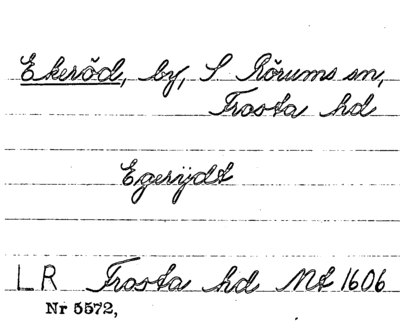 Ekeröd, by, S Rörums sn,
Frosta hd
Egerijdt
LR Frosta hd Mt 1606
Nr 5572,